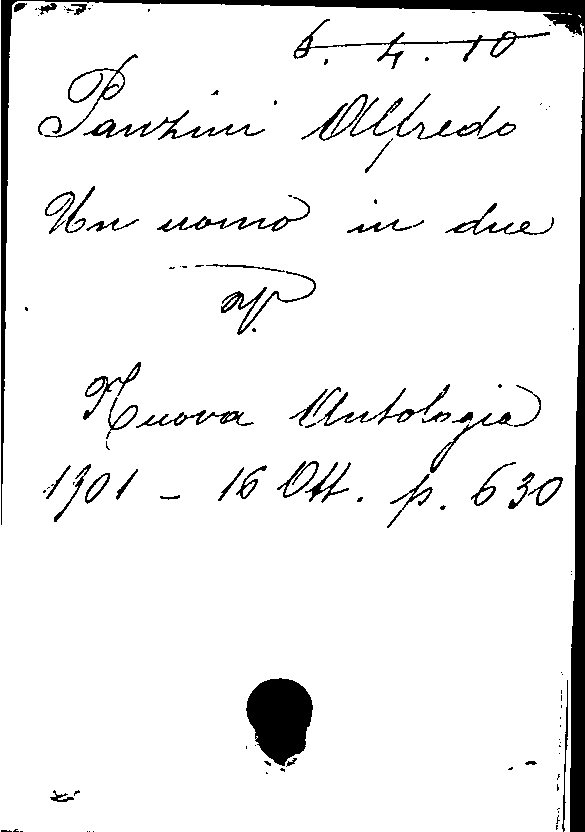 6. 4. 10
Panzini Alfredo
Un uomo in due
Nuova Antologia
1901 - 16 Ott. p. 630